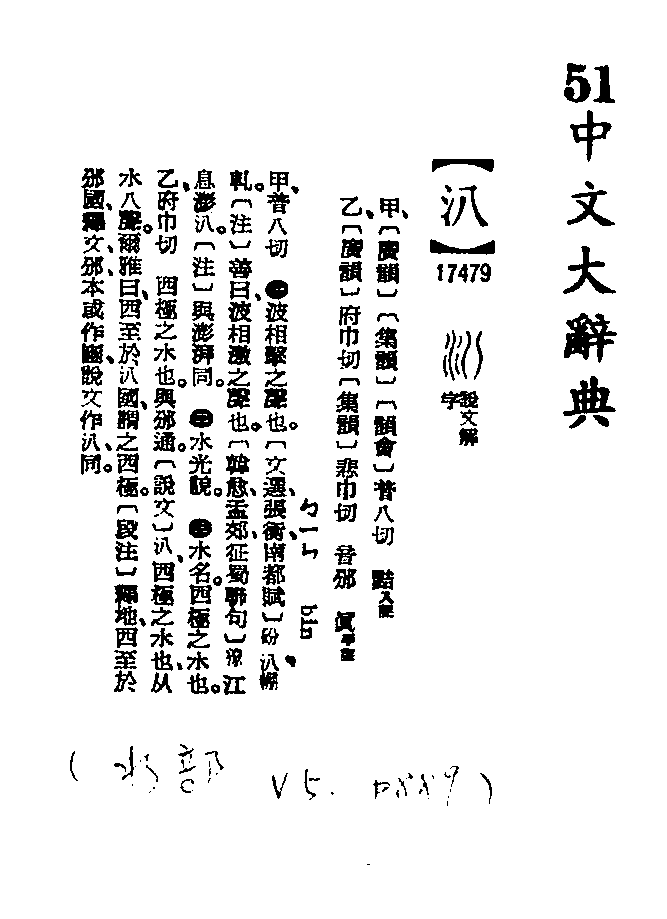 51
中文大辭典
【汃】
17479
說文解字
甲、〔廣韻〕〔集韻〕〔韻會〕普八切 黠入聲
乙、〔廣韻〕府巾切〔集韻〕悲巾切 音邠 眞平聲
ㄅㄧㄣ bin
甲、普八切 ㊀波相擊之聲也。〔文選、張衡、南都賦〕砏汃輣
軋。〔注〕善曰、波相激之聲也。〔韓愈、孟郊、征蜀聯句〕獠江
息澎汃。〔注〕與澎湃同。㊁水光貌。㊂水名。西極之水也。
乙、府巾切 西極之水也。與邠通。〔說文〕汃、西極之水也、从
水八聲。爾雅曰、西至於汃國、謂之西極。〔段注〕釋地、西至於
邠國、釋文、邠、本或作豳、說文作汃、同。
(水部 V5. P889)